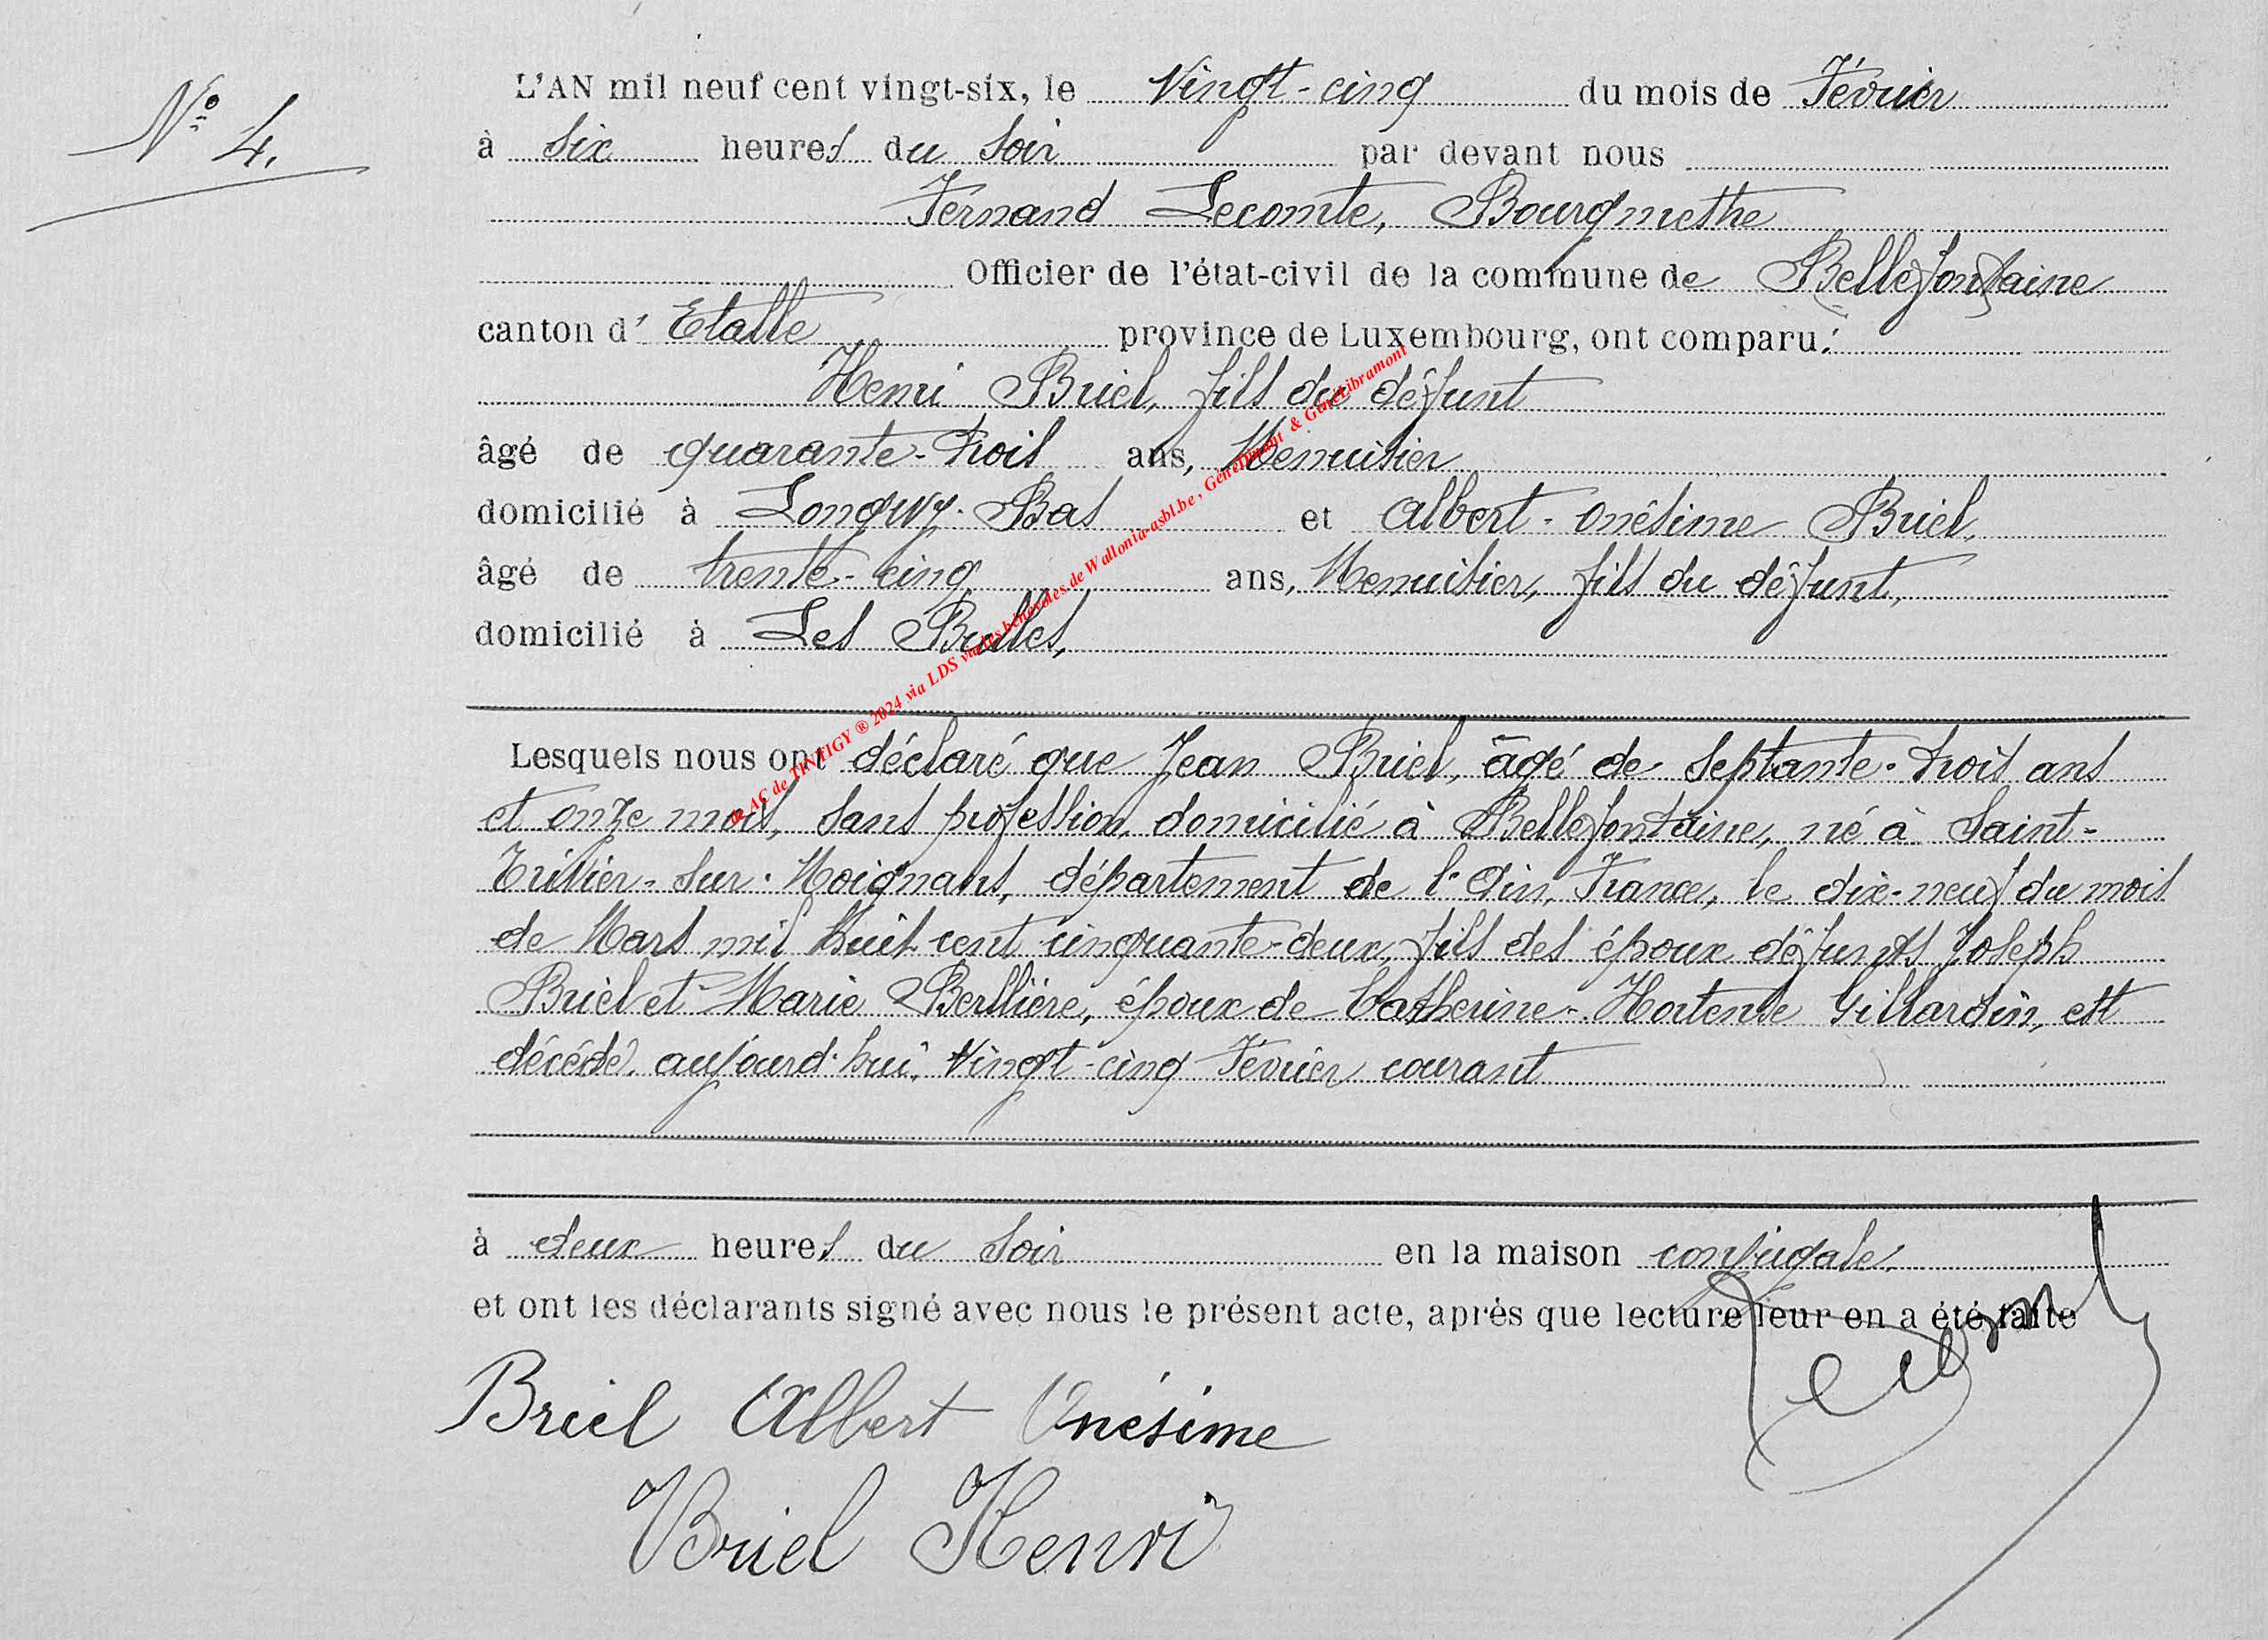 N° 4.
L'AN mil neuf cent vingt-six, le Vingt-cinq du mois de Février
à six heures du soir par devant nous
Fernand Lecomte, Bourgmestre
Officier de l'état-civil de la commune de Bellefontaine
canton d' Etalle province de Luxembourg, ont comparu:
Henri Briel, fils du défunt
âgé de quarante-trois ans, Menuisier
domicilié à Longwy-Bas et Albert-Onésime Briel,
âgé de trente-cinq ans, Menuisier, fils du défunt,
domicilié à Les Bulles,
Lesquels nous ont déclaré que Jean Briel, âgé de septante-trois ans
et onze mois, sans profession, domicilié à Bellefontaine, né à Saint-
Trivier-sur-Moignans, département de l'Ain, France, le dix-neuf du mois
de Mars mil huit cent cinquante-deux, fils des époux défunts Joseph
Briel et Marie Berllière, époux de Catherine-Hortense Gillardin, est
décédé aujourd'hui, vingt-cinq Février courant
à deux heures du soir en la maison conjugale.
et ont les déclarants signé avec nous le présent acte, après que lecture leur en a été faite
Briel Albert Onésime
Briel Henri
de AC de TINTIGY ® 2024 via LDS via les bénévoles de Wallonia-asbl.be, GeneDinant & GénéLibramont